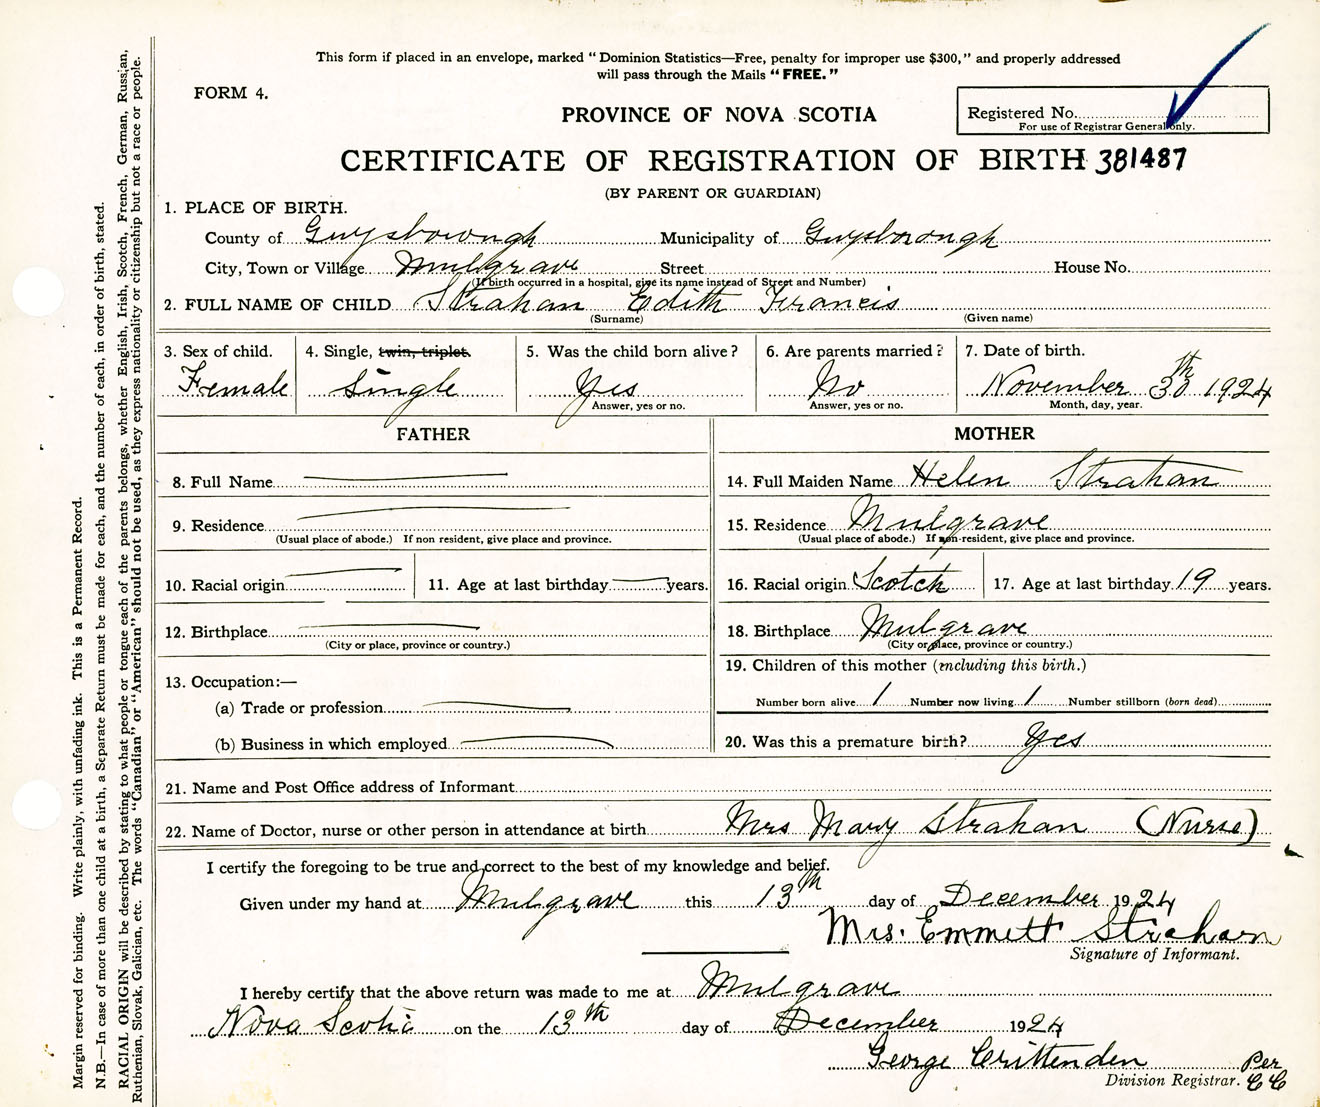 This form if placed in an envelope, marked "Dominion Statistics—Free, penalty for improper use $300," and properly addressed
will pass through the Mails "FREE."
FORM 4.
PROVINCE OF NOVA SCOTIA
Registered No.
For use of Registrar General only.
CERTIFICATE OF REGISTRATION OF BIRTH 381487
(BY PARENT OR GUARDIAN)
1. PLACE OF BIRTH.
County of Guysborough Municipality of Guysborough
City, Town or Village Mulgrave Street House No.
(If birth occurred in a hospital, give its name instead of Street and Number)
2. FULL NAME OF CHILD Strahan Edith Francis
(Surname) (Given name)
3. Sex of child. 4. Single, twin, triplet. 5. Was the child born alive? 6. Are parents married? 7. Date of birth.
Female Single Yes No November 30th 1924
Answer, yes or no. Answer, yes or no. Month, day, year.
FATHER
8. Full Name
9. Residence
(Usual place of abode.) If non resident, give place and province.
10. Racial origin 11. Age at last birthday years.
12. Birthplace
(City or place, province or country.)
13. Occupation:—
(a) Trade or profession
(b) Business in which employed
MOTHER
14. Full Maiden Name Helen Strahan
15. Residence Mulgrave
(Usual place of abode.) If non-resident, give place and province.
16. Racial origin Scotch 17. Age at last birthday 19 years.
18. Birthplace Mulgrave
(City or place, province or country.)
19. Children of this mother (including this birth.)
Number born alive 1 Number now living 1 Number stillborn (born dead)
20. Was this a premature birth? Yes
21. Name and Post Office address of Informant
22. Name of Doctor, nurse or other person in attendance at birth Mrs Mary Strahan (Nurse)
I certify the foregoing to be true and correct to the best of my knowledge and belief.
Given under my hand at Mulgrave this 13th day of December 1924
Mrs. Emmett Strahan
Signature of Informant.
I hereby certify that the above return was made to me at Mulgrave
Nova Scotia on the 13th day of December 1924
George Crittenden Per
Division Registrar. CC
Margin reserved for binding. Write plainly, with unfading ink. This is a Permanent Record.
N.B.—In case of more than one child at a birth, a Separate Return must be made for each, and the number of each, in order of birth, stated.
RACIAL ORIGIN will be described by stating to what people or tongue each of the parents belongs, whether English, Irish, Scotch, French, German, Russian,
Ruthenian, Slovak, Galician, etc. The words "Canadian" or "American" should not be used, as they express nationality or citizenship but not a race or people.